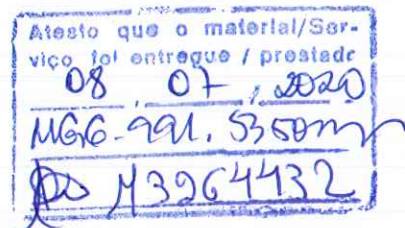 Atesto que o material/Ser-
viço foi entregue / prestado
08 , 07 , 2020
MG6-991.535
M3964432